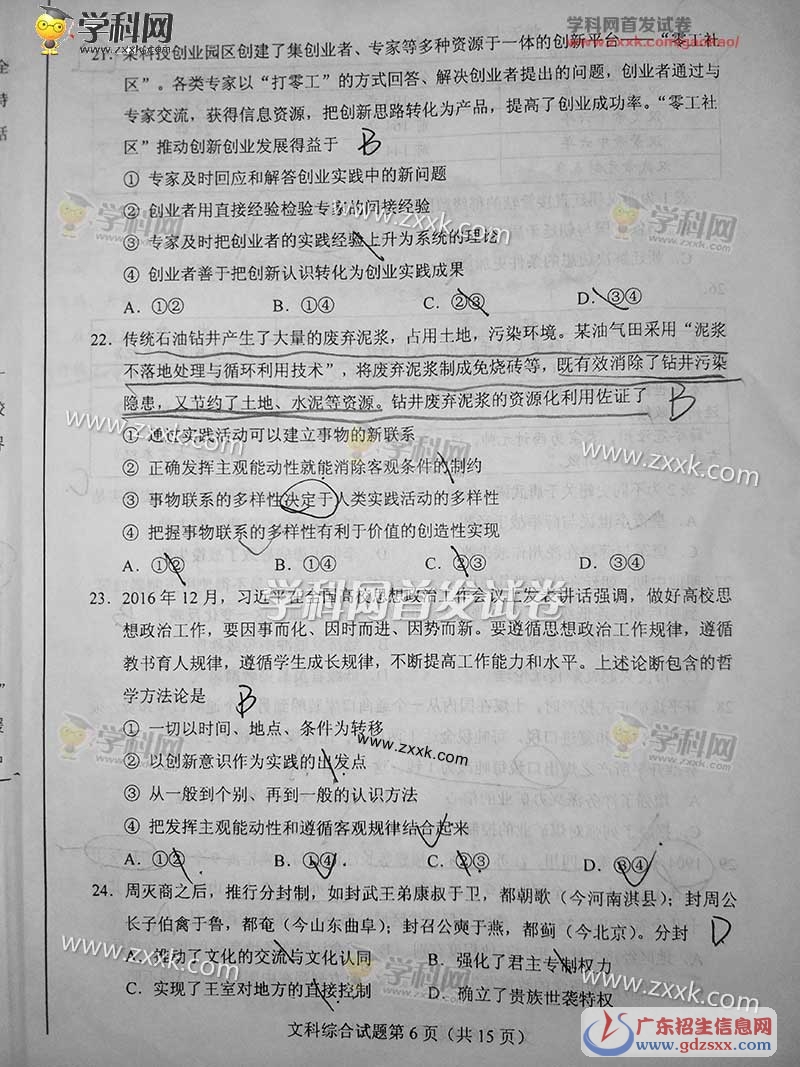 学科网
www.zxxk.com
学科网首发试卷
21. 某科技创业园区创建了集创业者、专家等多种资源于一体的创新平台——“零工社
区”。各类专家以“打零工”的方式回答、解决创业者提出的问题，创业者通过与
专家交流，获得信息资源，把创新思路转化为产品，提高了创业成功率。“零工社
区”推动创新创业发展得益于 B
① 专家及时回应和解答创业实践中的新问题
② 创业者用直接经验检验专家的间接经验
③ 专家及时把创业者的实践经验上升为系统的理论
④ 创业者善于把创新认识转化为创业实践成果
A. ①② B. ①④ C. ②③ D. ③④
22. 传统石油钻井产生了大量的废弃泥浆，占用土地，污染环境。某油气田采用“泥浆
不落地处理与循环利用技术”，将废弃泥浆制成免烧砖等，既有效消除了钻井污染
隐患，又节约了土地、水泥等资源。钻井废弃泥浆的资源化利用佐证了 B
① 通过实践活动可以建立事物的新联系
② 正确发挥主观能动性就能消除客观条件的制约
③ 事物联系的多样性决定于人类实践活动的多样性
④ 把握事物联系的多样性有利于价值的创造性实现
A. ①② B. ①④ C. ②③ D. ③④
学科网首发试卷
23. 2016 年 12 月，习近平在全国高校思想政治工作会议上发表讲话强调，做好高校思
想政治工作，要因事而化、因时而进、因势而新。要遵循思想政治工作规律，遵循
教书育人规律，遵循学生成长规律，不断提高工作能力和水平。上述论断包含的哲
学方法论是 B
① 一切以时间、地点、条件为转移
② 以创新意识作为实践的出发点
③ 从一般到个别、再到一般的认识方法
④ 把发挥主观能动性和遵循客观规律结合起来
A. ①② B. ①④ C. ②③ D. ③④
24. 周灭商之后，推行分封制，如封武王弟康叔于卫，都朝歌（今河南淇县）；封周公
长子伯禽于鲁，都奄（今山东曲阜）；封召公奭于燕，都蓟（今北京）。分封 D
A. 推动了文化的交流与文化认同 B. 强化了君主专制权力
C. 实现了王室对地方的直接控制 D. 确立了贵族世袭特权
文科综合试题第 6 页（共 15 页）
广东招生信息网
www.gdzsxx.com